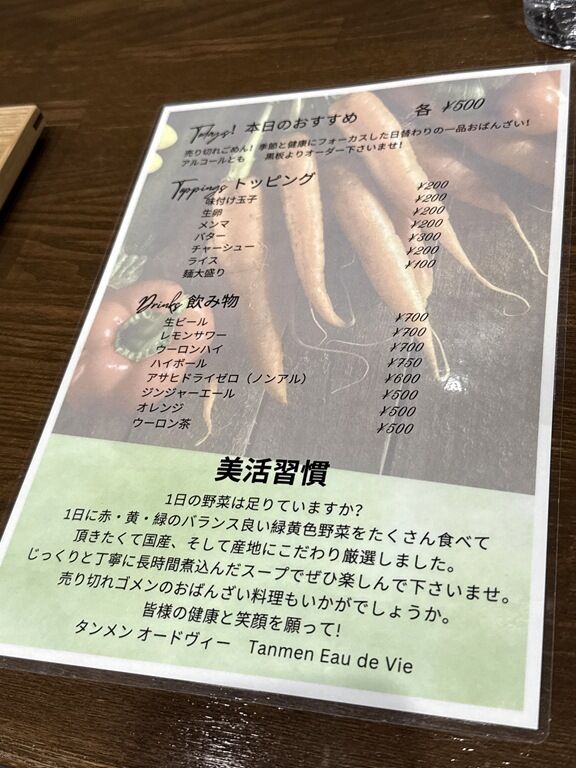 Todays! 本日のおすすめ 各 ¥500
売り切れごめん！季節と健康にフォーカスした日替わりの一品おばんざい！
アルコールとも 黒板よりオーダー下さいませ！
Toppings トッピング
味付け玉子 ¥200
生卵 ¥200
メンマ ¥200
バター ¥200
チャーシュー ¥300
ライス ¥200
麺大盛り ¥100
Drinks 飲み物
生ビール ¥700
レモンサワー ¥700
ウーロンハイ ¥700
ハイボール ¥750
アサヒドライゼロ（ノンアル） ¥600
ジンジャーエール ¥500
オレンジ ¥500
ウーロン茶 ¥500
美活習慣
1日の野菜は足りていますか？
1日に赤・黄・緑のバランス良い緑黄色野菜をたくさん食べて
頂きたくて国産、そして産地にこだわり厳選しました。
じっくりと丁寧に長時間煮込んだスープでぜひ楽しんで下さいませ。
売り切れゴメンのおばんざい料理もいかがでしょうか。
皆様の健康と笑顔を願って！
タンメン オードヴィー Tanmen Eau de Vie